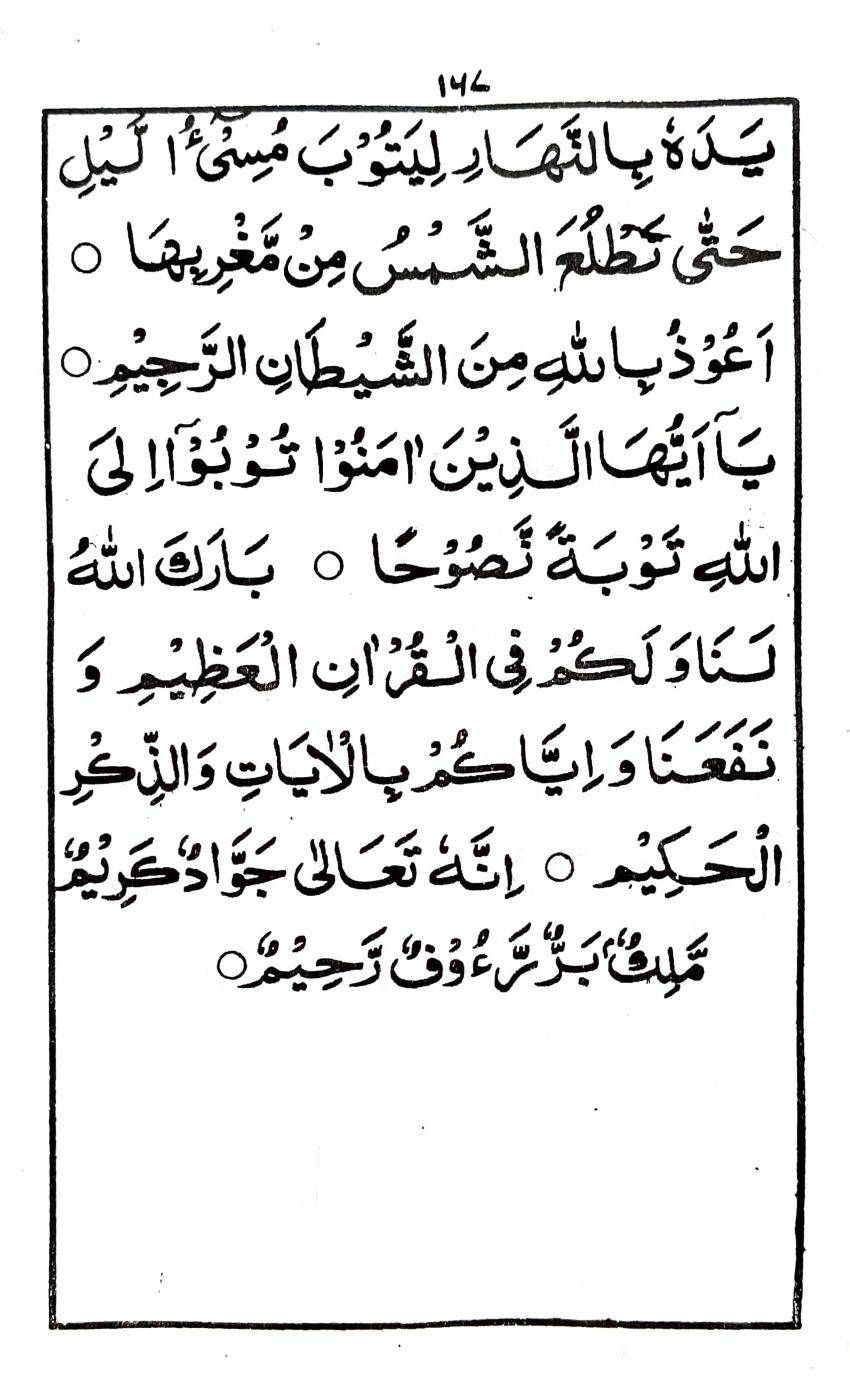 ۱۶۷
يَدَهٗ بِالنَّهَارِ لِيَتُوْبَ مُسِيْٓءُ الَّيْلِ
حَتّٰى تَطْلُعَ الشَّمْسُ مِنْ مَّغْرِبِهَا ○
اَعُوْذُ بِاللهِ مِنَ الشَّيْطَانِ الرَّجِيْمِ ○
يَآ اَيُّهَا الَّذِيْنَ اٰمَنُوْا تُوْبُوْٓا اِلَى
اللّٰهِ تَوْبَةً نَّصُوْحًا ○ بَارَكَ اللّٰهُ
لَنَا وَ لَكُمْ فِى الْقُرْاٰنِ الْعَظِيْمِ وَ
نَفَعَنَا وَ اِيَّاكُمْ بِالْاٰيَاتِ وَالذِّكْرِ
الْحَكِيْمِ ○ اِنَّهٗ تَعَالٰى جَوَّادٌ كَرِيْمٌ
مَّلِكٌ بَرٌّ رَّءُوْفٌ رَّحِيْمٌ ○